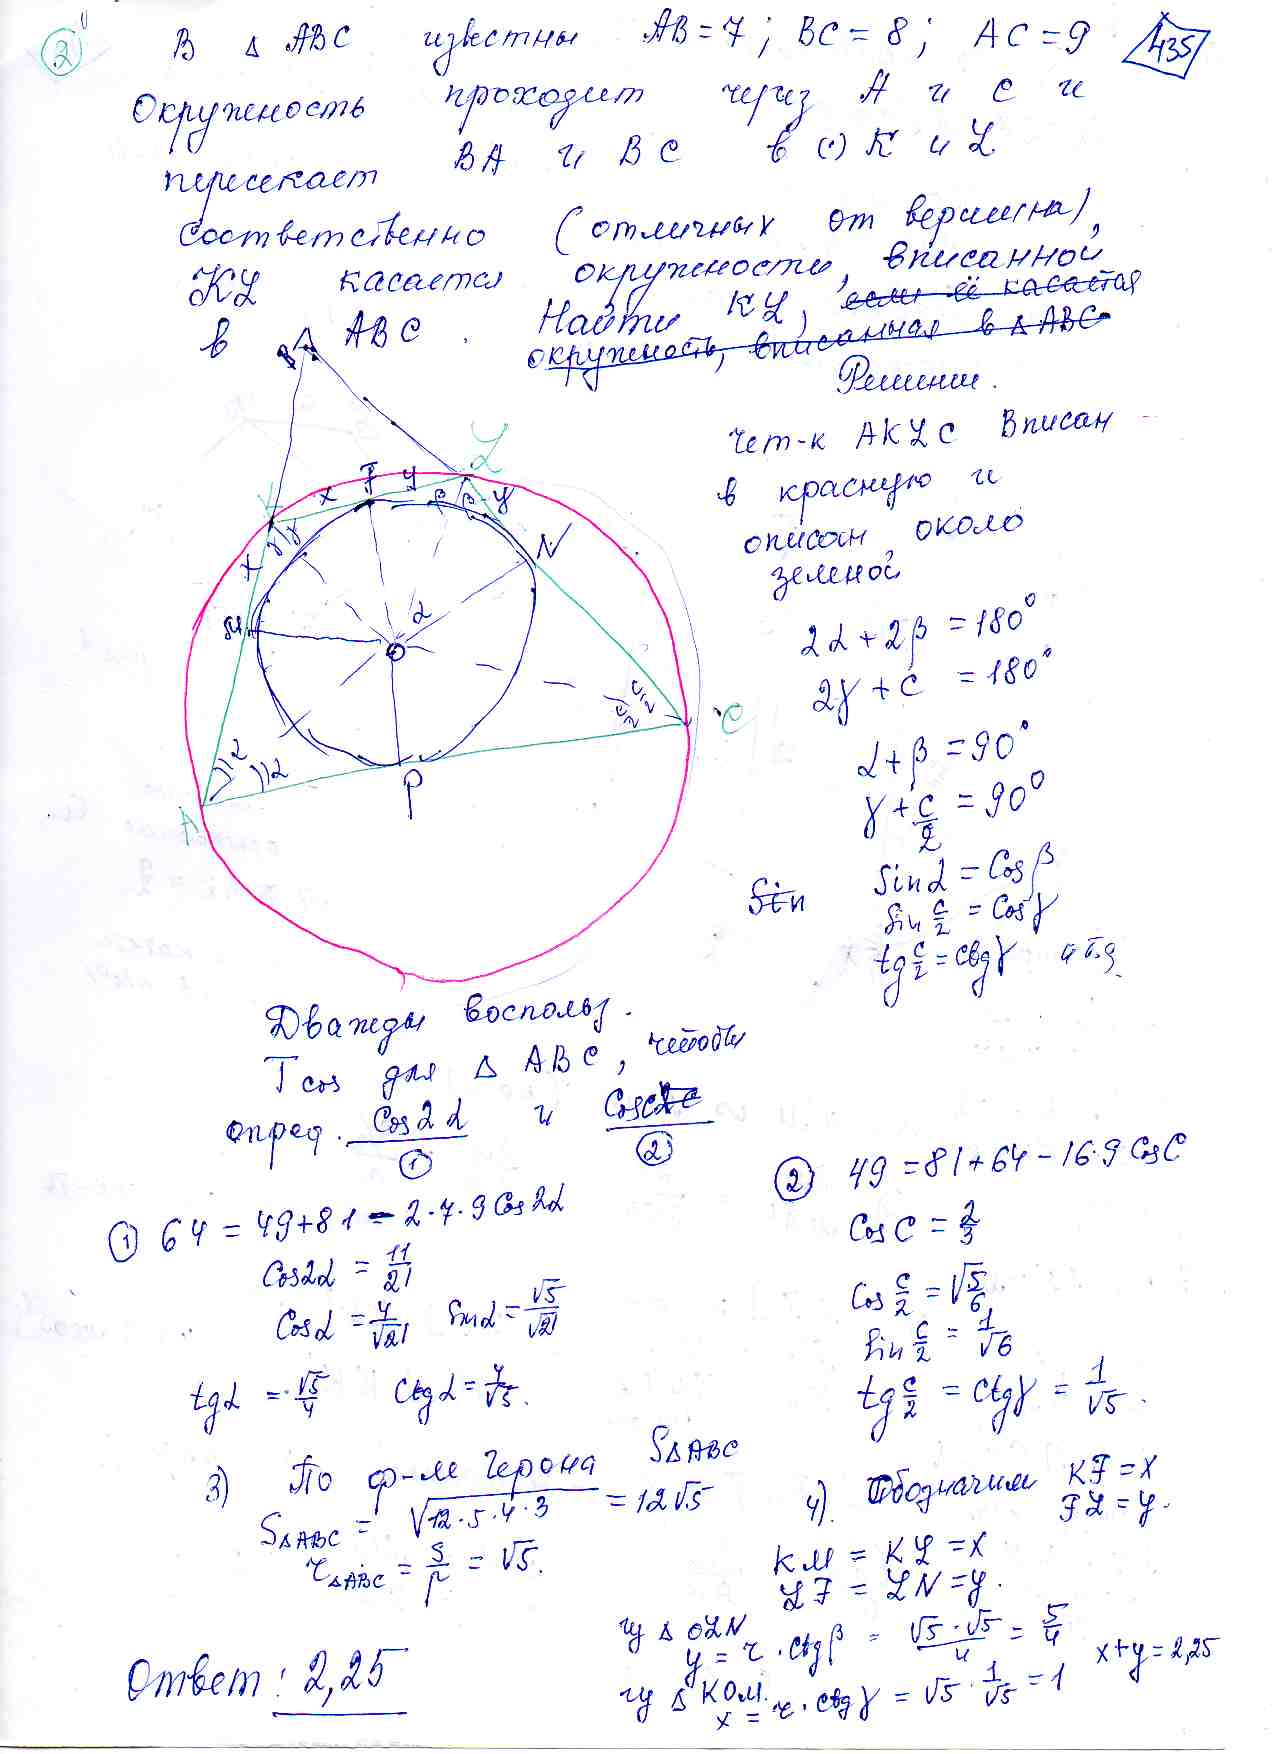 2
В Δ ABC известны AB = 7; BC = 8; AC = 9
435
Окружность проходит через A и C и
пересекает BA и BC в (·) K и L
соответственно (отличных от вершина),
KL касается окружности, вписанной
в Δ ABC. Найти KL, если её касается
окружность, вписанная в Δ ABC
Решение.
B
Чет-к AKLC Вписан
в красную и
описан около
зеленой
K x F y L
x γ γ β β y
M N
O α
α α
C/2 C/2
A P C
2α + 2β = 180°
2γ + C = 180°
α + β = 90°
γ + C/2 = 90°
Sin Sinα = Cosβ
Sin C/2 = Cosγ
tg C/2 = Ctgγ и т.д.
Дважды воспольз.
T cos для Δ ABC, чтобы
опред. Cos2α и CosC
① ②
① 64 = 49 + 81 - 2·7·9 Cos2α
Cos2α = 11/21
Cosα = 4/√21 Sinα = √5/√21
tgα = √5/4 Ctgα = 4/√5.
② 49 = 81 + 64 - 16·9 CosC
CosC = 2/3
Cos C/2 = √5/6
Sin C/2 = 1/√6
tg C/2 = Ctgγ = 1/√5.
3) По ф-ле Герона SΔABC
SΔABC = √12·5·4·3 = 12√5
rΔABC = S/p = √5.
4). Обозначим KF = x
FL = y.
KM = KL = x
LF = LN = y.
из Δ OLN
y = r · Ctgβ = √5·√5/4 = 5/4
x + y = 2,25
из Δ KOM.
x = r · Ctgγ = √5 · 1/√5 = 1
Ответ: 2,25